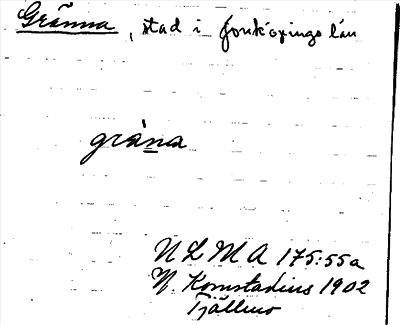 Gränna, stad i Jönköpings län
gràna
NLMA 175:55a
N. Komstadius 1902
Tjällmo